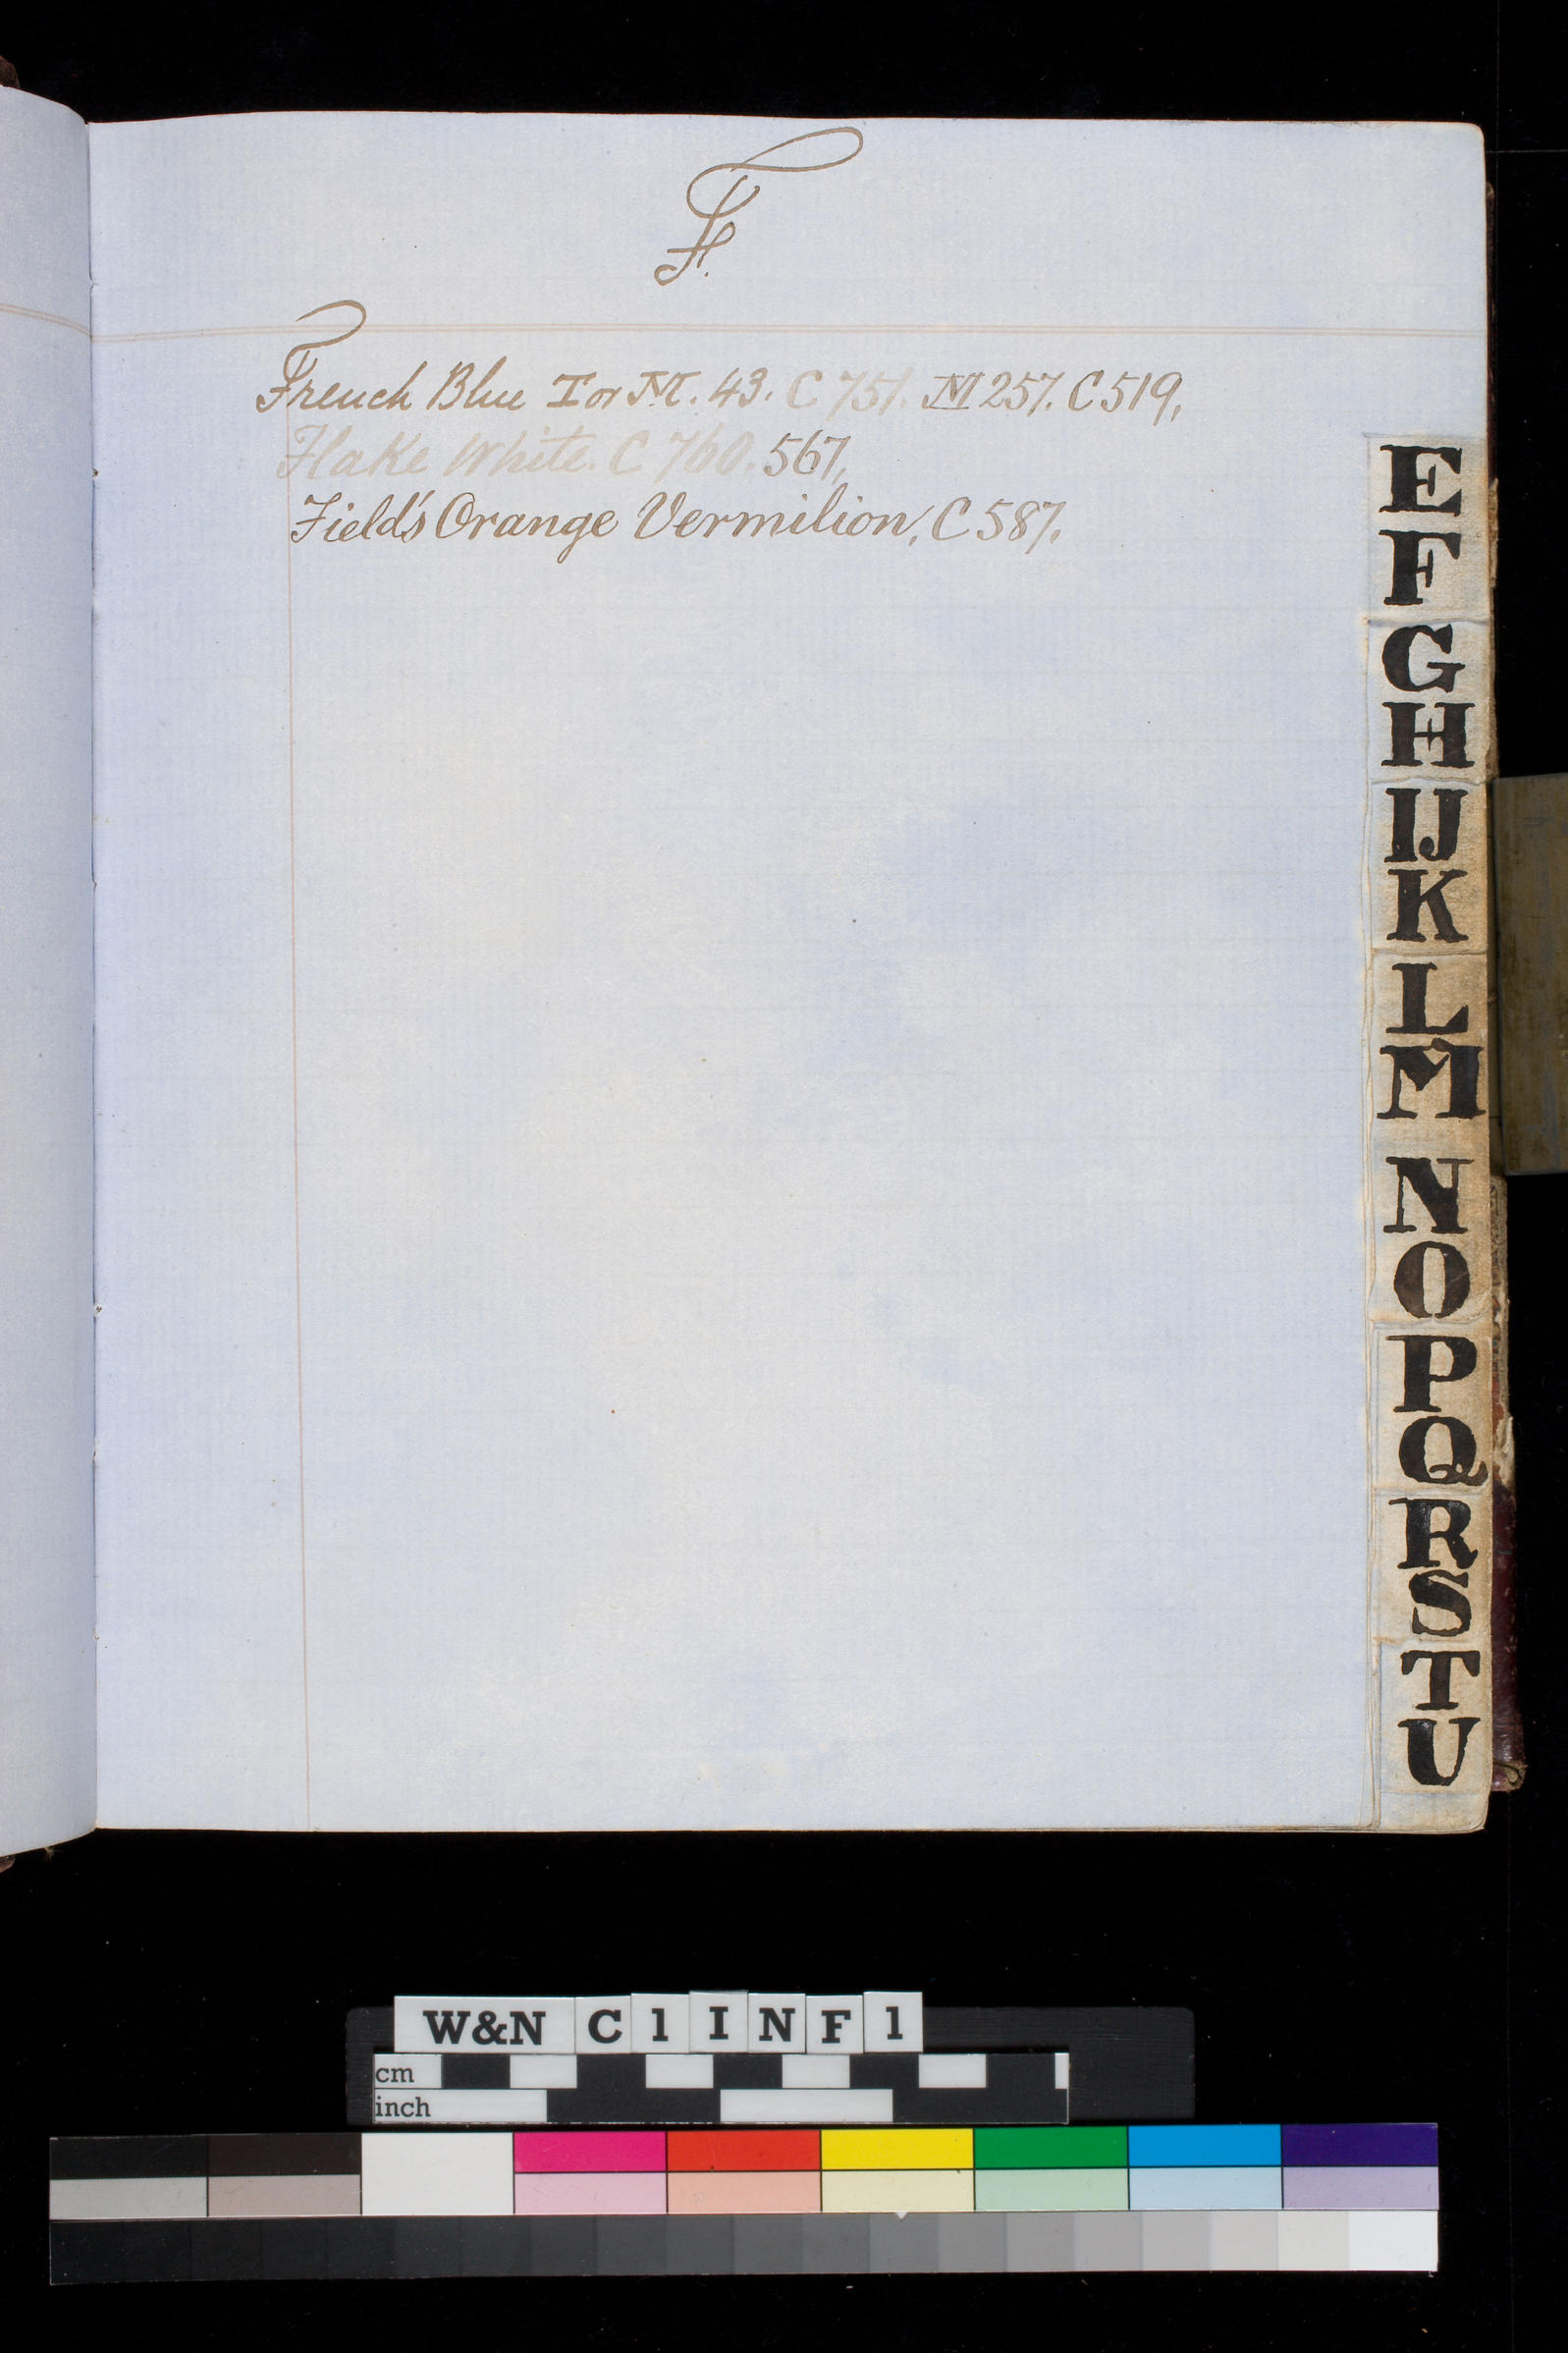 F.
French Blue I or M. 43. C 751. M 257. C 519,
Flake White. C 760. 567,
Field's Orange Vermilion, C 587.
E
F
G
H
IJ
K
L
M
N
O
P
Q
R
S
T
U
W&N C1INF1
cm
inch